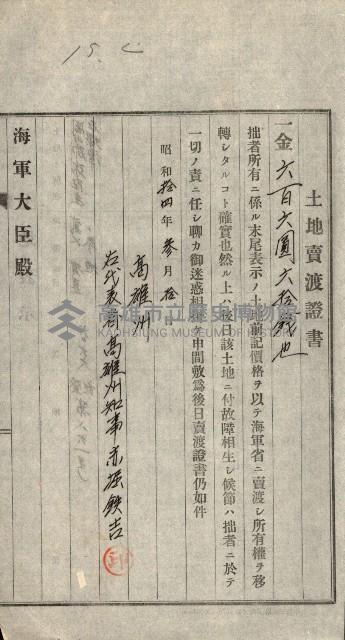 15.
土地賣渡證書
一金六百六圓六拾錢也
拙者所有ニ係ル末尾表示ノ土地前記價格ヲ以テ海軍省ニ賣渡シ所有權ヲ移
轉シタルコト確實也然ル上ハ後日該土地ニ付故障相生シ候節ハ拙者ニ於テ
一切ノ責ニ任シ聊カ御迷惑相 申間敷爲後日賣渡證書仍如件
昭和拾四年參月拾
高雄州
右代表者高雄州知事赤堀鉄吉
海軍大臣殿
高雄市立歷史博物館
KAOHSIUNG MUSEUM OF HISTORY